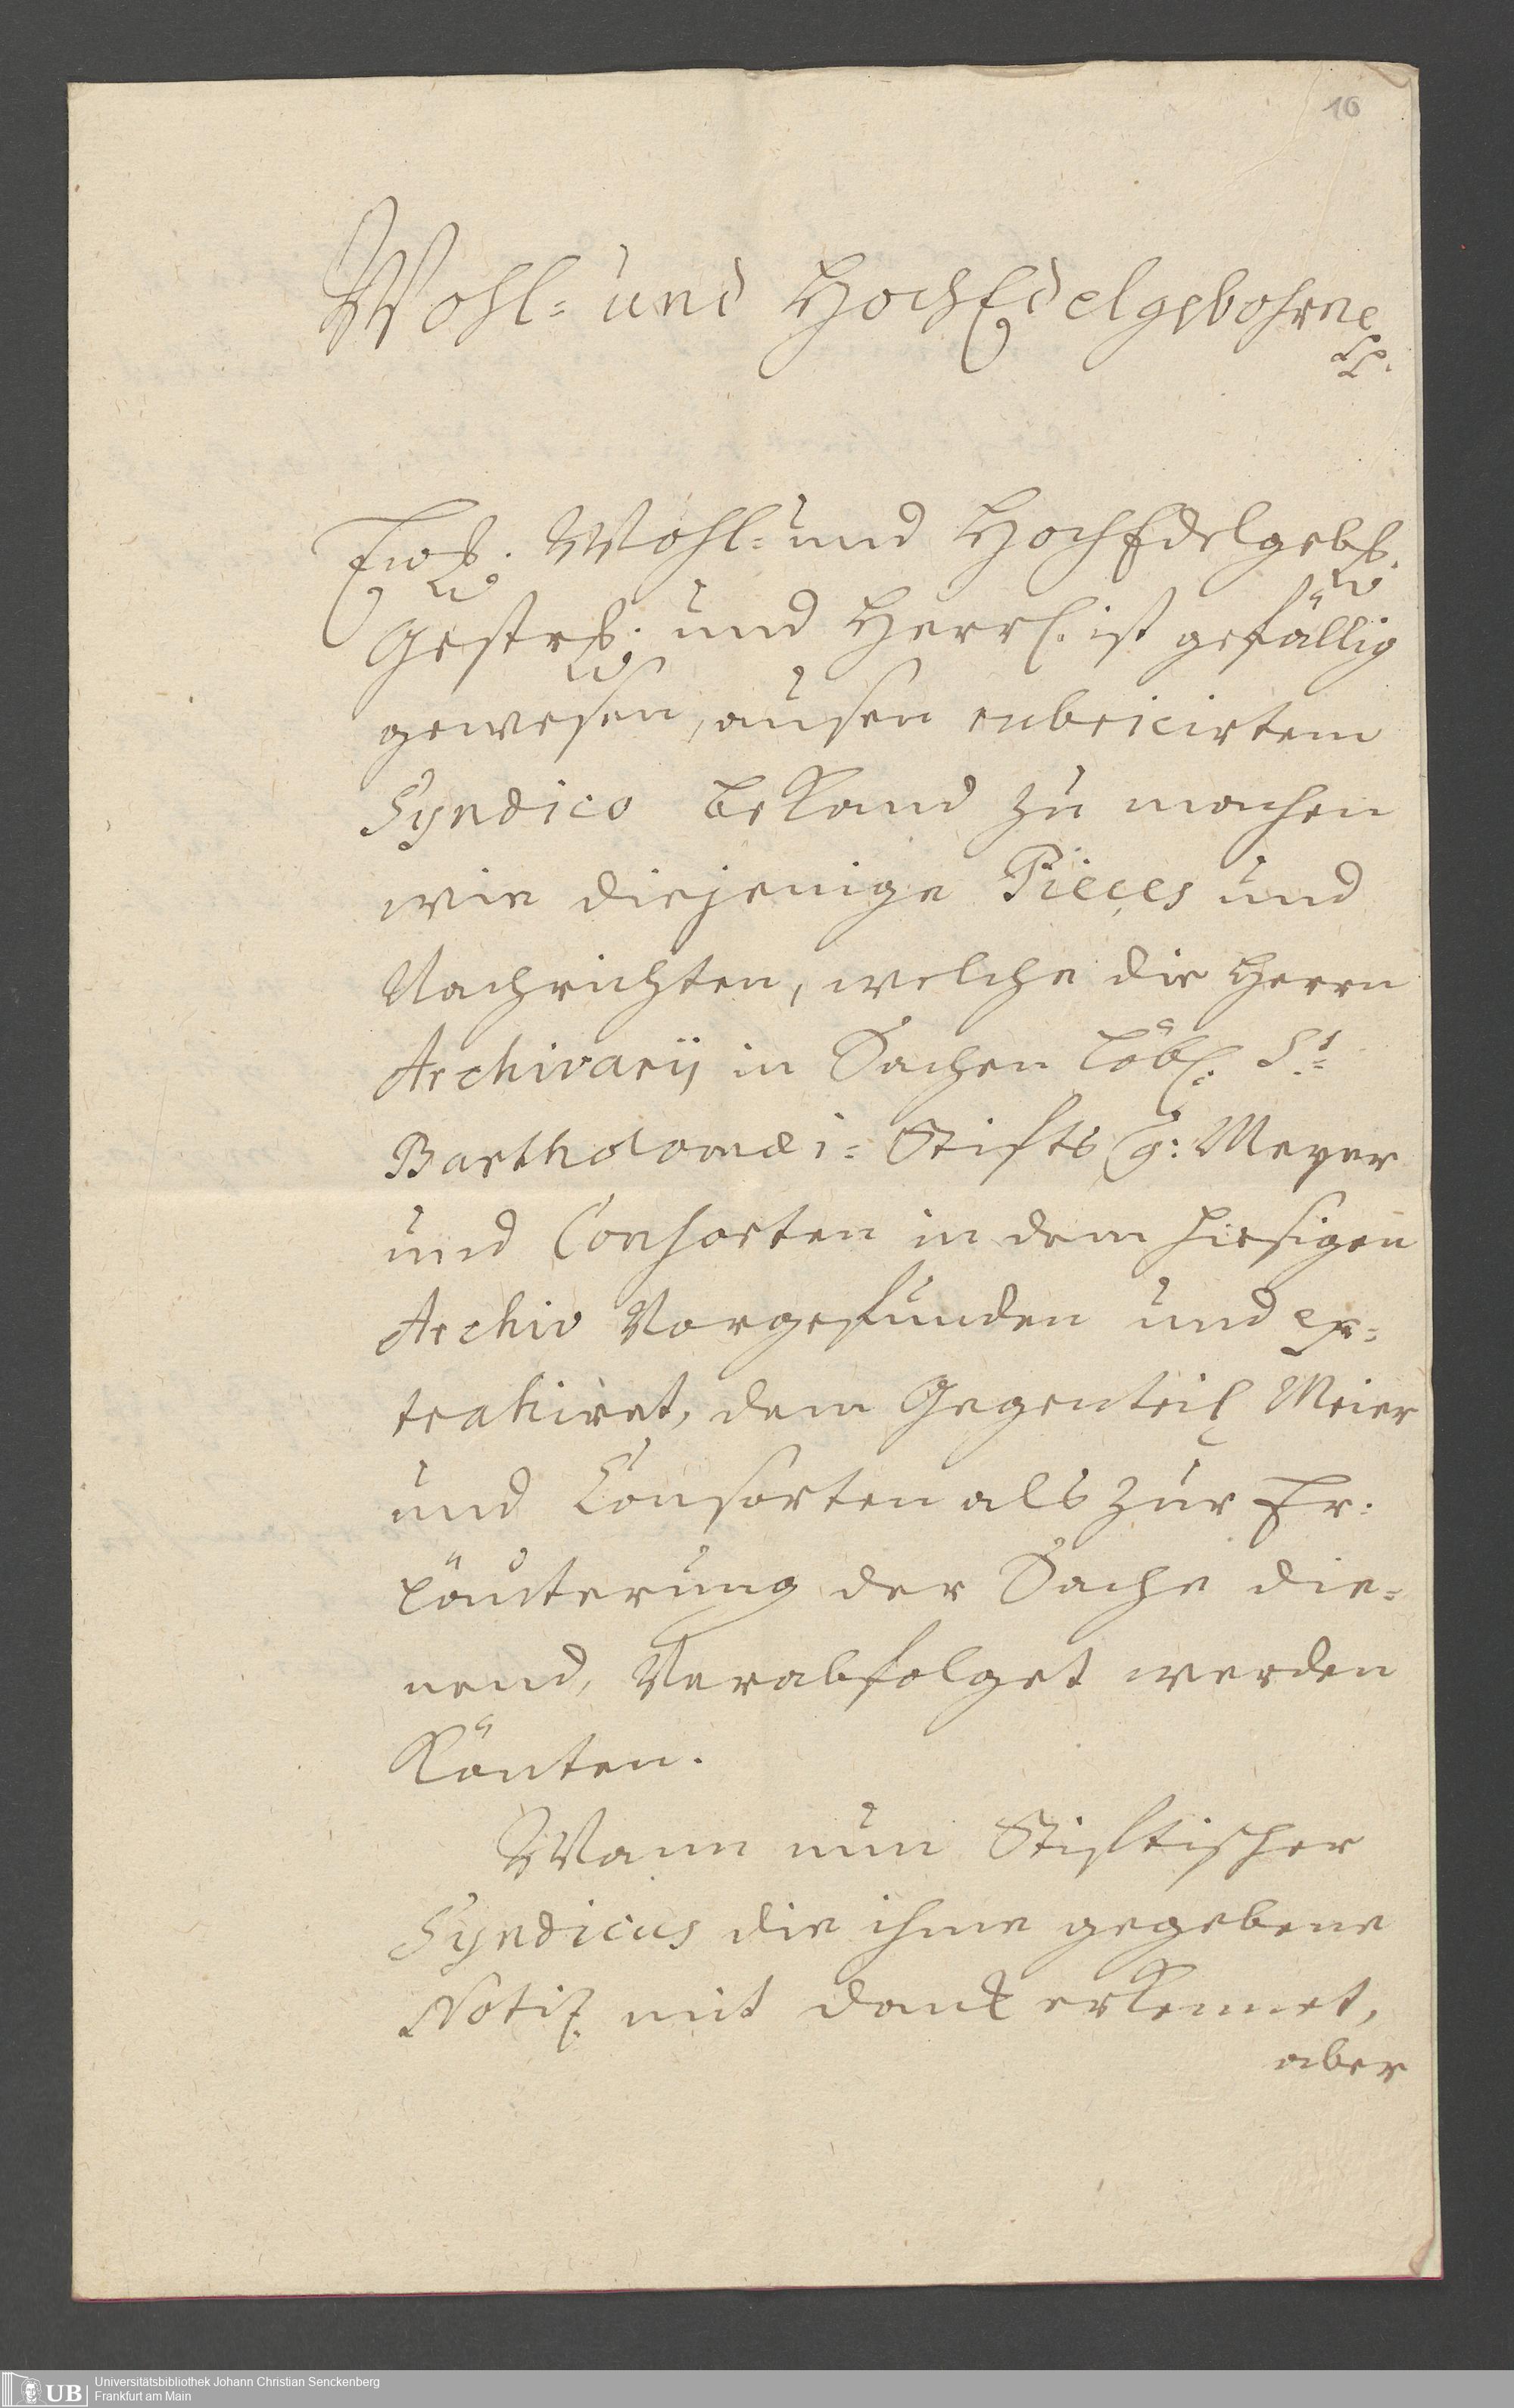 10
Wohl= und HochEdelgebohrne
Ew. Wohl= und HochEdelgeb.
Gestr. und Herrl. ist gefällig
gewesen, ausen rubricirtem
Syndico bekand zu machen
wie diejenige Pieçes und
Nachrichten, welche die Herrn
Archivarij in Sachen löbl. St.
Bartholomæi= Stifts Cg: Meyer
und Consorten in dem hiesigen
Archiv Vorgefunden und ex=
trahiret, dem Gegenteil Meier
und Consorten als zur Er=
läuterung der Sache die=
nend, Verabfolget werden
könten.
Wann nun Stiftischer
Syndicus die ihme gegebene
Notiz mit danck erkennet,
aber
UB Universitätsbibliothek Johann Christian Senckenberg
Frankfurt am Main